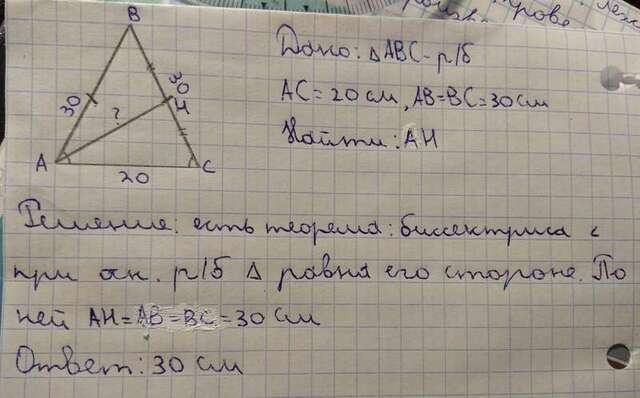 B
Дано: △ABC - р/б
30
30
H
?
AC = 20 см, AB=BC=30см
Найти: AH
A
C
20
Решение: есть теорема: биссектриса ∠
при осн. р/б △ равна его стороне. По
ней AH=AB=BC=30 см
Ответ: 30 см